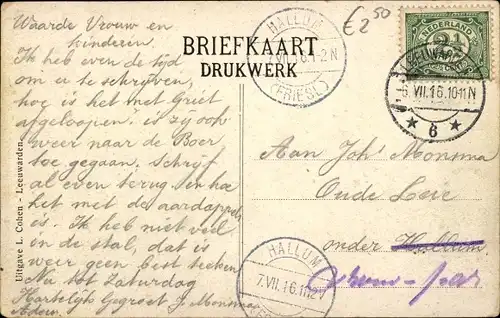 Waarde Vrouw en
kinderen.
Ik heb even de tijd
om u te schrijven,
hoe is het met Griet
afgeloopen. is zy ook
weer naar de Boer
toe gegaan. Schrijf
al even terug en ha
het met de aardappels
is. Ik heb niet veel
in de stal, dat is
weer geen best teeken
Nu tot Zaturdag
Hartelijk Gegroet J Monsma
Adieu.
Uitgave L. Cohen - Leeuwarden.
BRIEFKAART
DRUKWERK
HALLUM
7.VII.16.1-2N
(FRIESL)
€2 50
NEDERLAND
2½
LEEUWARDEN
6.VII.16.10-11N
6
Aan Johs Monsma
Oude Leie
onder Hallum
HALLUM
7.VII.16.11-12V